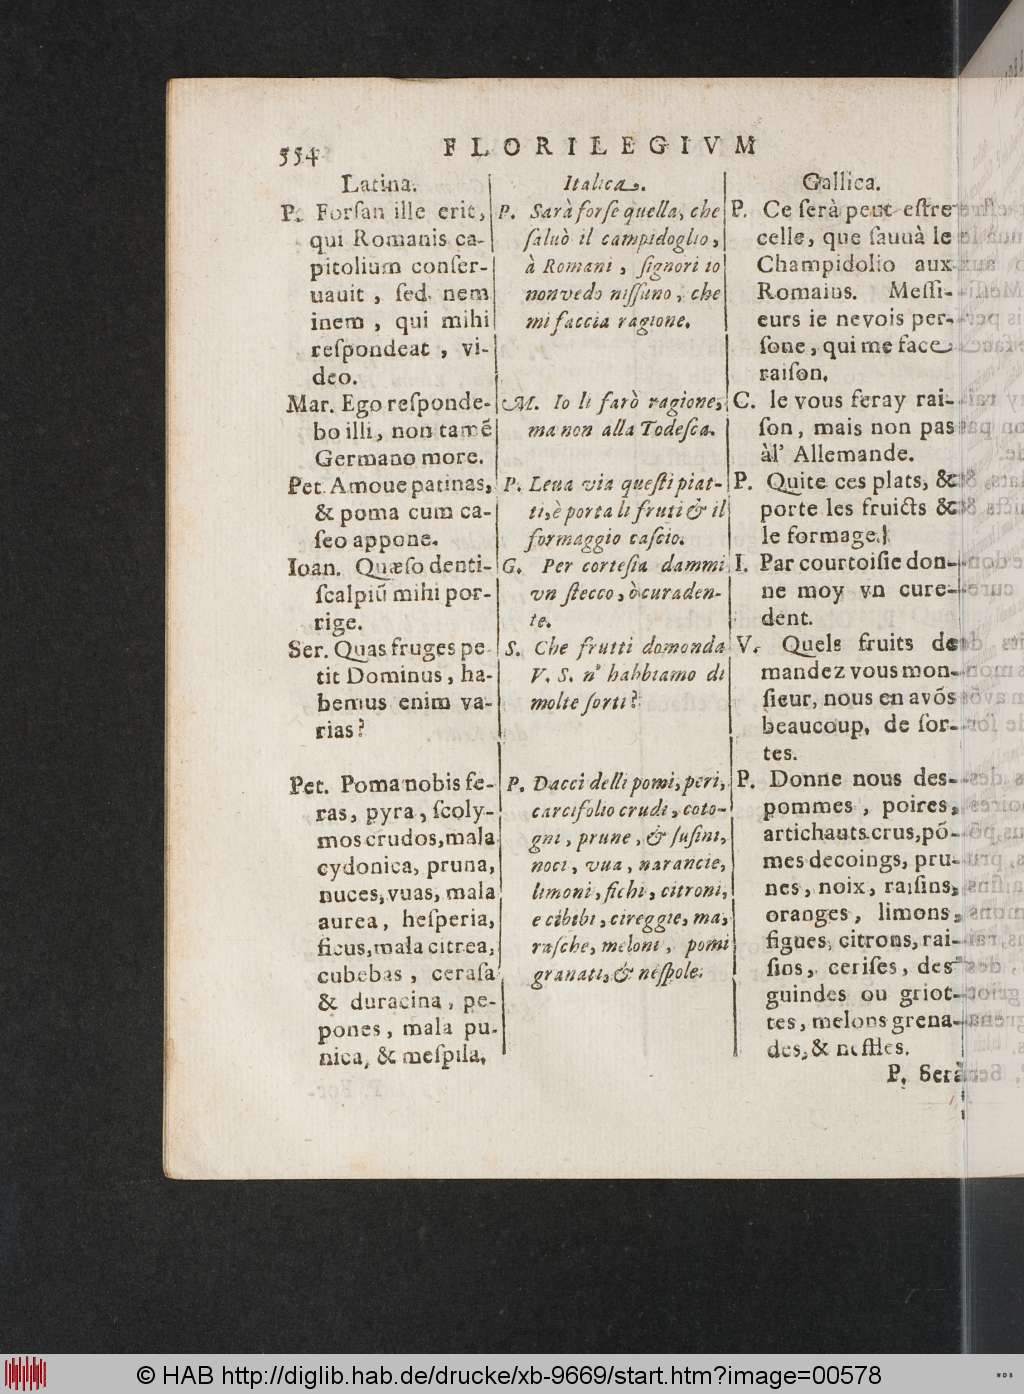 554
FLORILEGIVM
Latina.
P. Forſan ille erit,
qui Romanis ca-
pitolium conſer-
uauit , ſed nem
inem , qui mihi
reſpondeat , vi-
deo.
Mar. Ego reſponde-
bo illi, non tamē
Germano more.
Pet. Amoue patinas,
& poma cum ca-
ſeo appone.
Ioan. Quæſo denti-
ſcalpiū mihi por-
rige.
Ser. Quas fruges pe-
tit Dominus, ha-
bemus enim va-
rias?
Pet. Poma nobis fe-
ras, pyra, ſcoly-
mos crudos, mala
cydonica, pruna,
nuces, vuas, mala
aurea, heſperia,
ficus, mala citrea,
cubebas , ceraſa
& duracina, pe-
pones, mala pu-
nica, & meſpila.
Italica.
P. Sarà forſe quella, che
ſaluò il campidoglio,
à Romani , ſignori io
nonvedo niſſuno, che
mi faccia ragione.
M. Io li farò ragione,
ma non alla Todeſca.
P. Leua via queſti piat-
ti, è porta li fruti & il
formaggio caſcio.
G. Per corteſia dammi
vn ſtecco, ò curaden-
te.
S. Che frutti domonda
V. S. n' habbiamo di
molte ſorti?
P. Dacci delli pomi, peri,
carcifolio crudi, coto-
gni, prune, & ſuſini,
noci, vua, narancie,
limoni, fichi, citroni,
e cibibi, cireggie, ma,
raſche, meloni, pomi
granati, & neſpole.
Gallica.
P. Ce ſerà peut eſtre
celle, que ſauuà le
Champidolio aux
Romains. Meſſi-
eurs ie nevois per-
ſone, qui me face
raiſon.
C. Ie vous feray rai-
ſon, mais non pas
àl' Allemande.
P. Quite ces plats, &
porte les fruicts &
le formage.
I. Par courtoiſie don-
ne moy vn cure-
dent.
V. Quels fruits de
mandez vous mon-
ſieur, nous en avōs
beaucoup, de ſor-
tes.
P. Donne nous des-
pommes , poires,
artichauts crus, pō-
mes decoings, pru-
nes, noix, raiſins,
oranges, limons,
figues, citrons, rai-
ſios, ceriſes, des
guindes ou griot-
tes, melons grena-
des, & neſfles.
P. Serà
© HAB http://diglib.hab.de/drucke/xb-9669/start.htm?image=00578